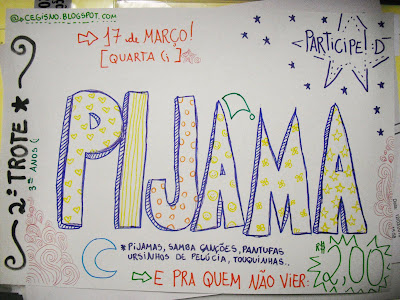 @ocegisno.blogspot.com
17 de MARÇO!
[QUARTA (:]
PARTICIPE! :D
2º TROTE *
3ºs ANOS (
PIJAMA
* PIJAMAS, SAMBA CANÇÕES, PANTUFAS
URSINHOS DE PELÚCIA, TOUQUINHAS..
E PRA QUEM NÃO VIER:
R$ 2,00